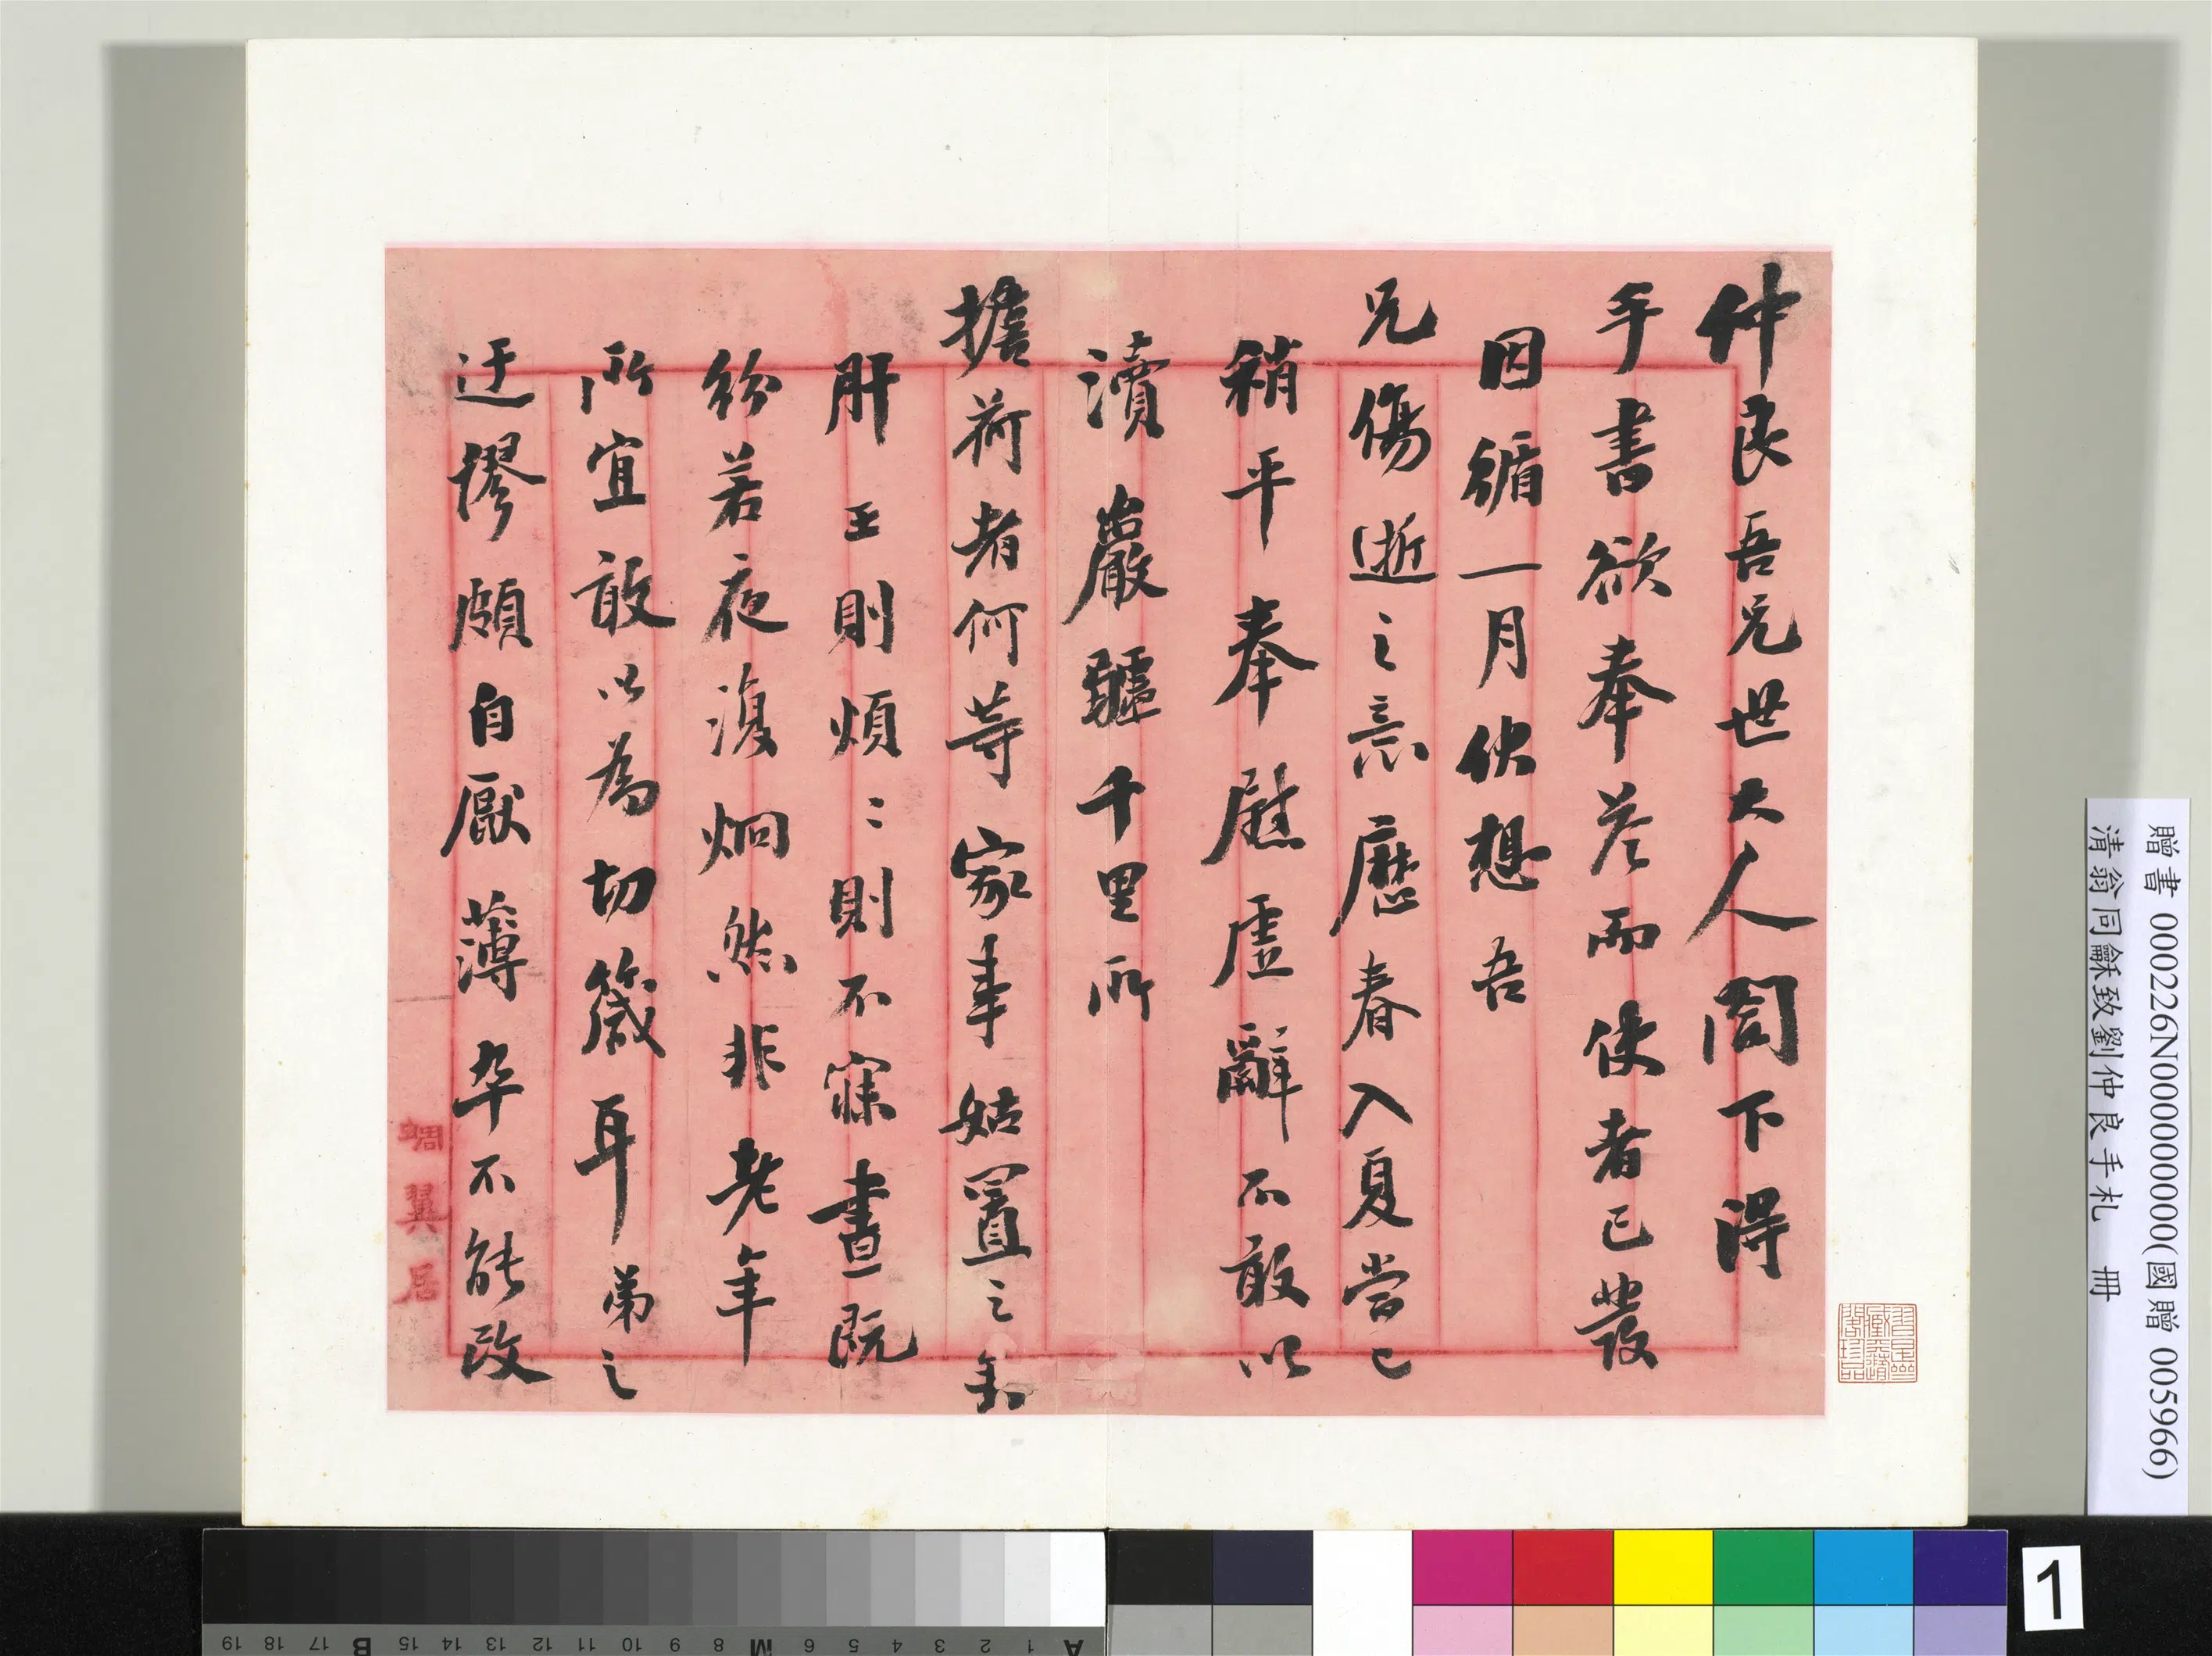 仲良吾兄世大人閤下得
手書欲奉答而使者已發
因循一月伏想吾
兄傷逝之意歷春入夏當已
稍平奉慰虛辭不敢以
瀆嚴驢千里所
擔荷者何等家事姑置之
肝王則煩〻則不寐晝既
紛若夜復炯然非老年
所宜敢以為切箴耳弟之
迂謬頗自厭薄卒不能改
蜩翼居
贈書 000226N000000000(國贈 005966)
清翁同龢致劉仲良手札 冊
A 1 2 3 4 5 6 M 8 9 10 11 12 13 14 15 B 17 18 19
1